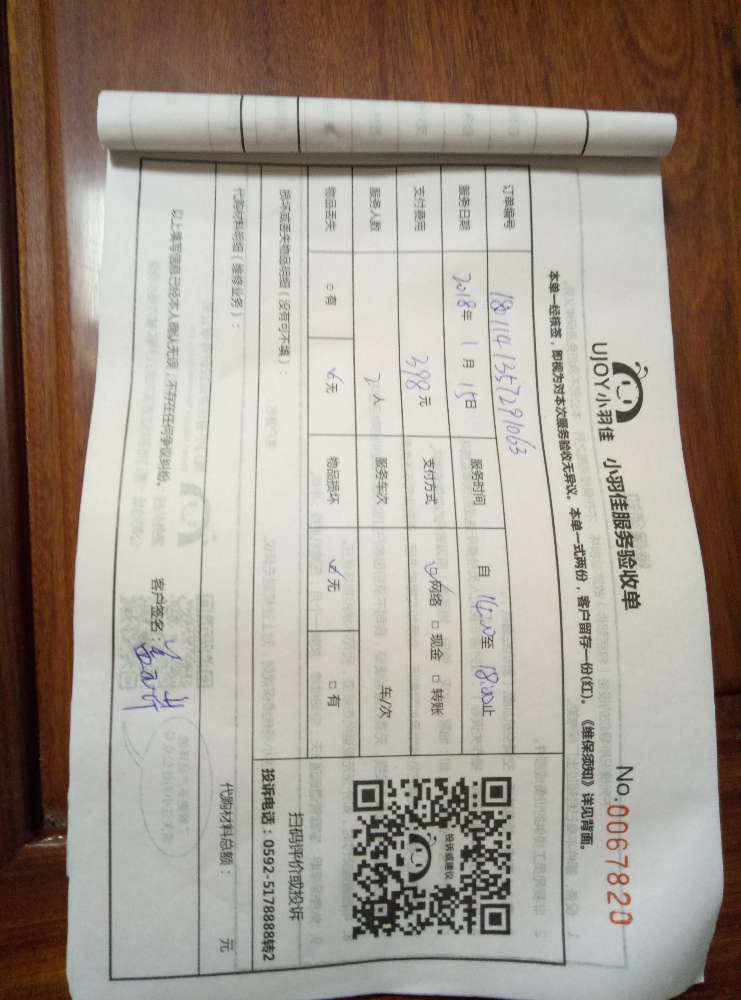 UJOY小羽佳 小羽佳服务验收单 No.0067820
本单一经核签，即视为对本次服务验收无异议。本单一式两份，客户留存一份(红)。《维保须知》详见背面。
订单编号 1801141357291063
服务日期 2018年 1月 15日 服务时间 自 14:00至 18:00止
支付费用 398元 支付方式 ☑网络 □现金 □转账
服务人数 2人 服务车次 车/次
物品丢失 □有 ☑无 物品损坏 ☑无 □有
投诉或建议
扫码评价或投诉
投诉电话：0592-5178888转2
损坏或丢失物品明细（没有可不填）：
代购材料明细（维修业务）： 代购材料总额： 元
以上填写信息已经本人确认无误，不存在任何争议纠纷。 客户签名：